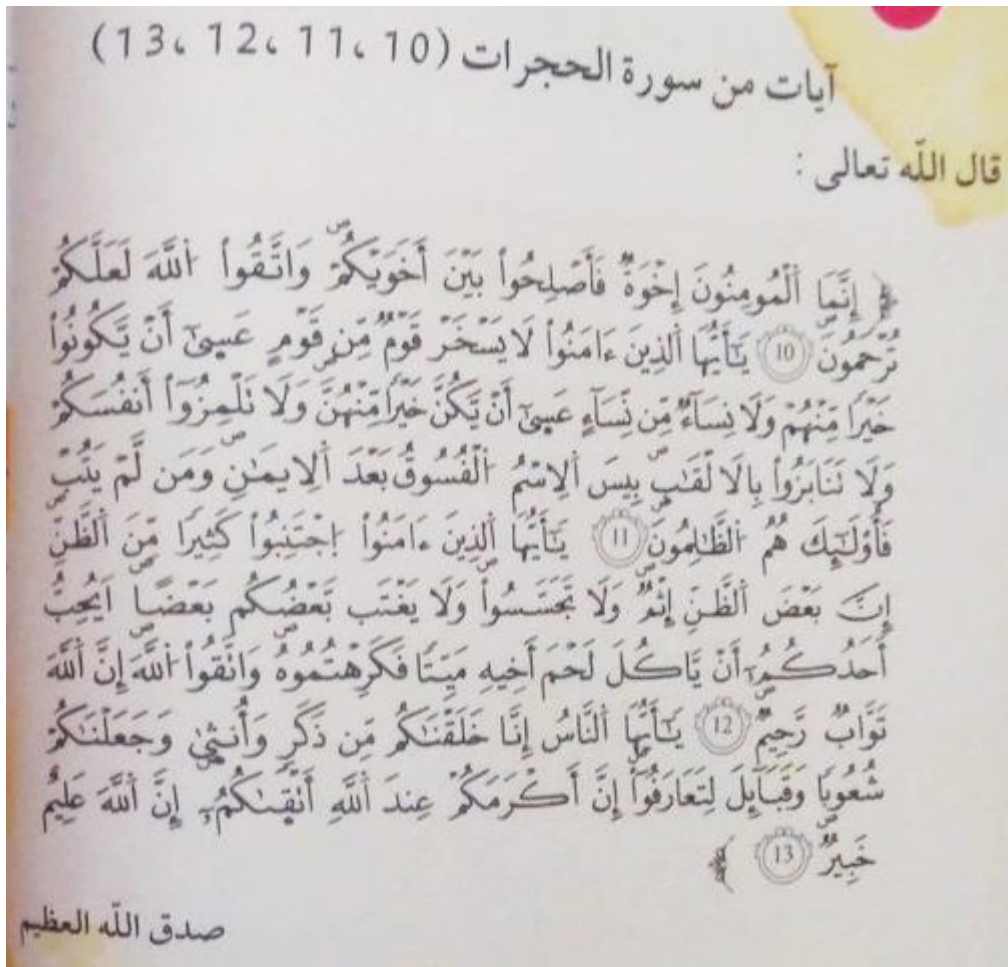 آيات من سورة الحجرات (10، 11، 12، 13)
قال اللّه تعالى :
﴿ إِنَّمَا اَلْمُومِنُونَ إِخْوَةٌ فَأَصْلِحُواْ بَيْنَ أَخَوَيْكُمْ وَاتَّقُواْ اُللَّهَ لَعَلَّكُمْ
تُرْحَمُونَ 10 يَٰٓأَيُّهَا اَلذِينَ ءَامَنُواْ لَا يَسْخَرْ قَوْمٌ مِّن قَوْمٍ عَسَىٰٓ أَنْ يَّكُونُواْ
خَيْرًا مِّنْهُمْ وَلَا نِسَآءٌ مِّن نِّسَآءٍ عَسَىٰٓ أَنْ يَّكُنَّ خَيْرًا مِّنْهُنَّ وَلَا تَلْمِزُوٓاْ أَنفُسَكُمْ
وَلَا تَنَابَزُواْ بِالَالْقَٰبِ بِيسَ اَلِاسْمُ اُلْفُسُوقُ بَعْدَ اَلِايمَٰنِ وَمَن لَّمْ يَتُبْ
فَأُوْلَٰٓئِكَ هُمُ اُلظَّٰلِمُونَ 11 يَٰٓأَيُّهَا اَلذِينَ ءَامَنُواْ اُجْتَنِبُواْ كَثِيرًا مِّنَ اَلظَّنِّ
إِنَّ بَعْضَ اَلظَّنِّ إِثْمٌ وَلَا تَجَسَّسُواْ وَلَا يَغْتَب بَّعْضُكُم بَعْضًا اَيُحِبُّ
أَحَدُكُمُۥٓ أَنْ يَّاكُلَ لَحْمَ أَخِيهِ مَيِّتًا فَكَرِهْتُمُوهُ وَاتَّقُواْ اُللَّهَ إِنَّ اَللَّهَ
تَوَّابٌ رَّحِيمٌ 12 يَٰٓأَيُّهَا اَلنَّاسُ إِنَّا خَلَقْنَٰكُم مِّن ذَكَرٍ وَأُنثَىٰ وَجَعَلْنَٰكُمْ
شُعُوبًا وَقَبَآئِلَ لِتَعَارَفُوٓاْ إِنَّ أَكْرَمَكُمْ عِندَ اَللَّهِ أَتْقَىٰكُمُۥٓ إِنَّ اَللَّهَ عَلِيمٌ
خَبِيرٌ 13 ﴾
صدق اللّه العظيم